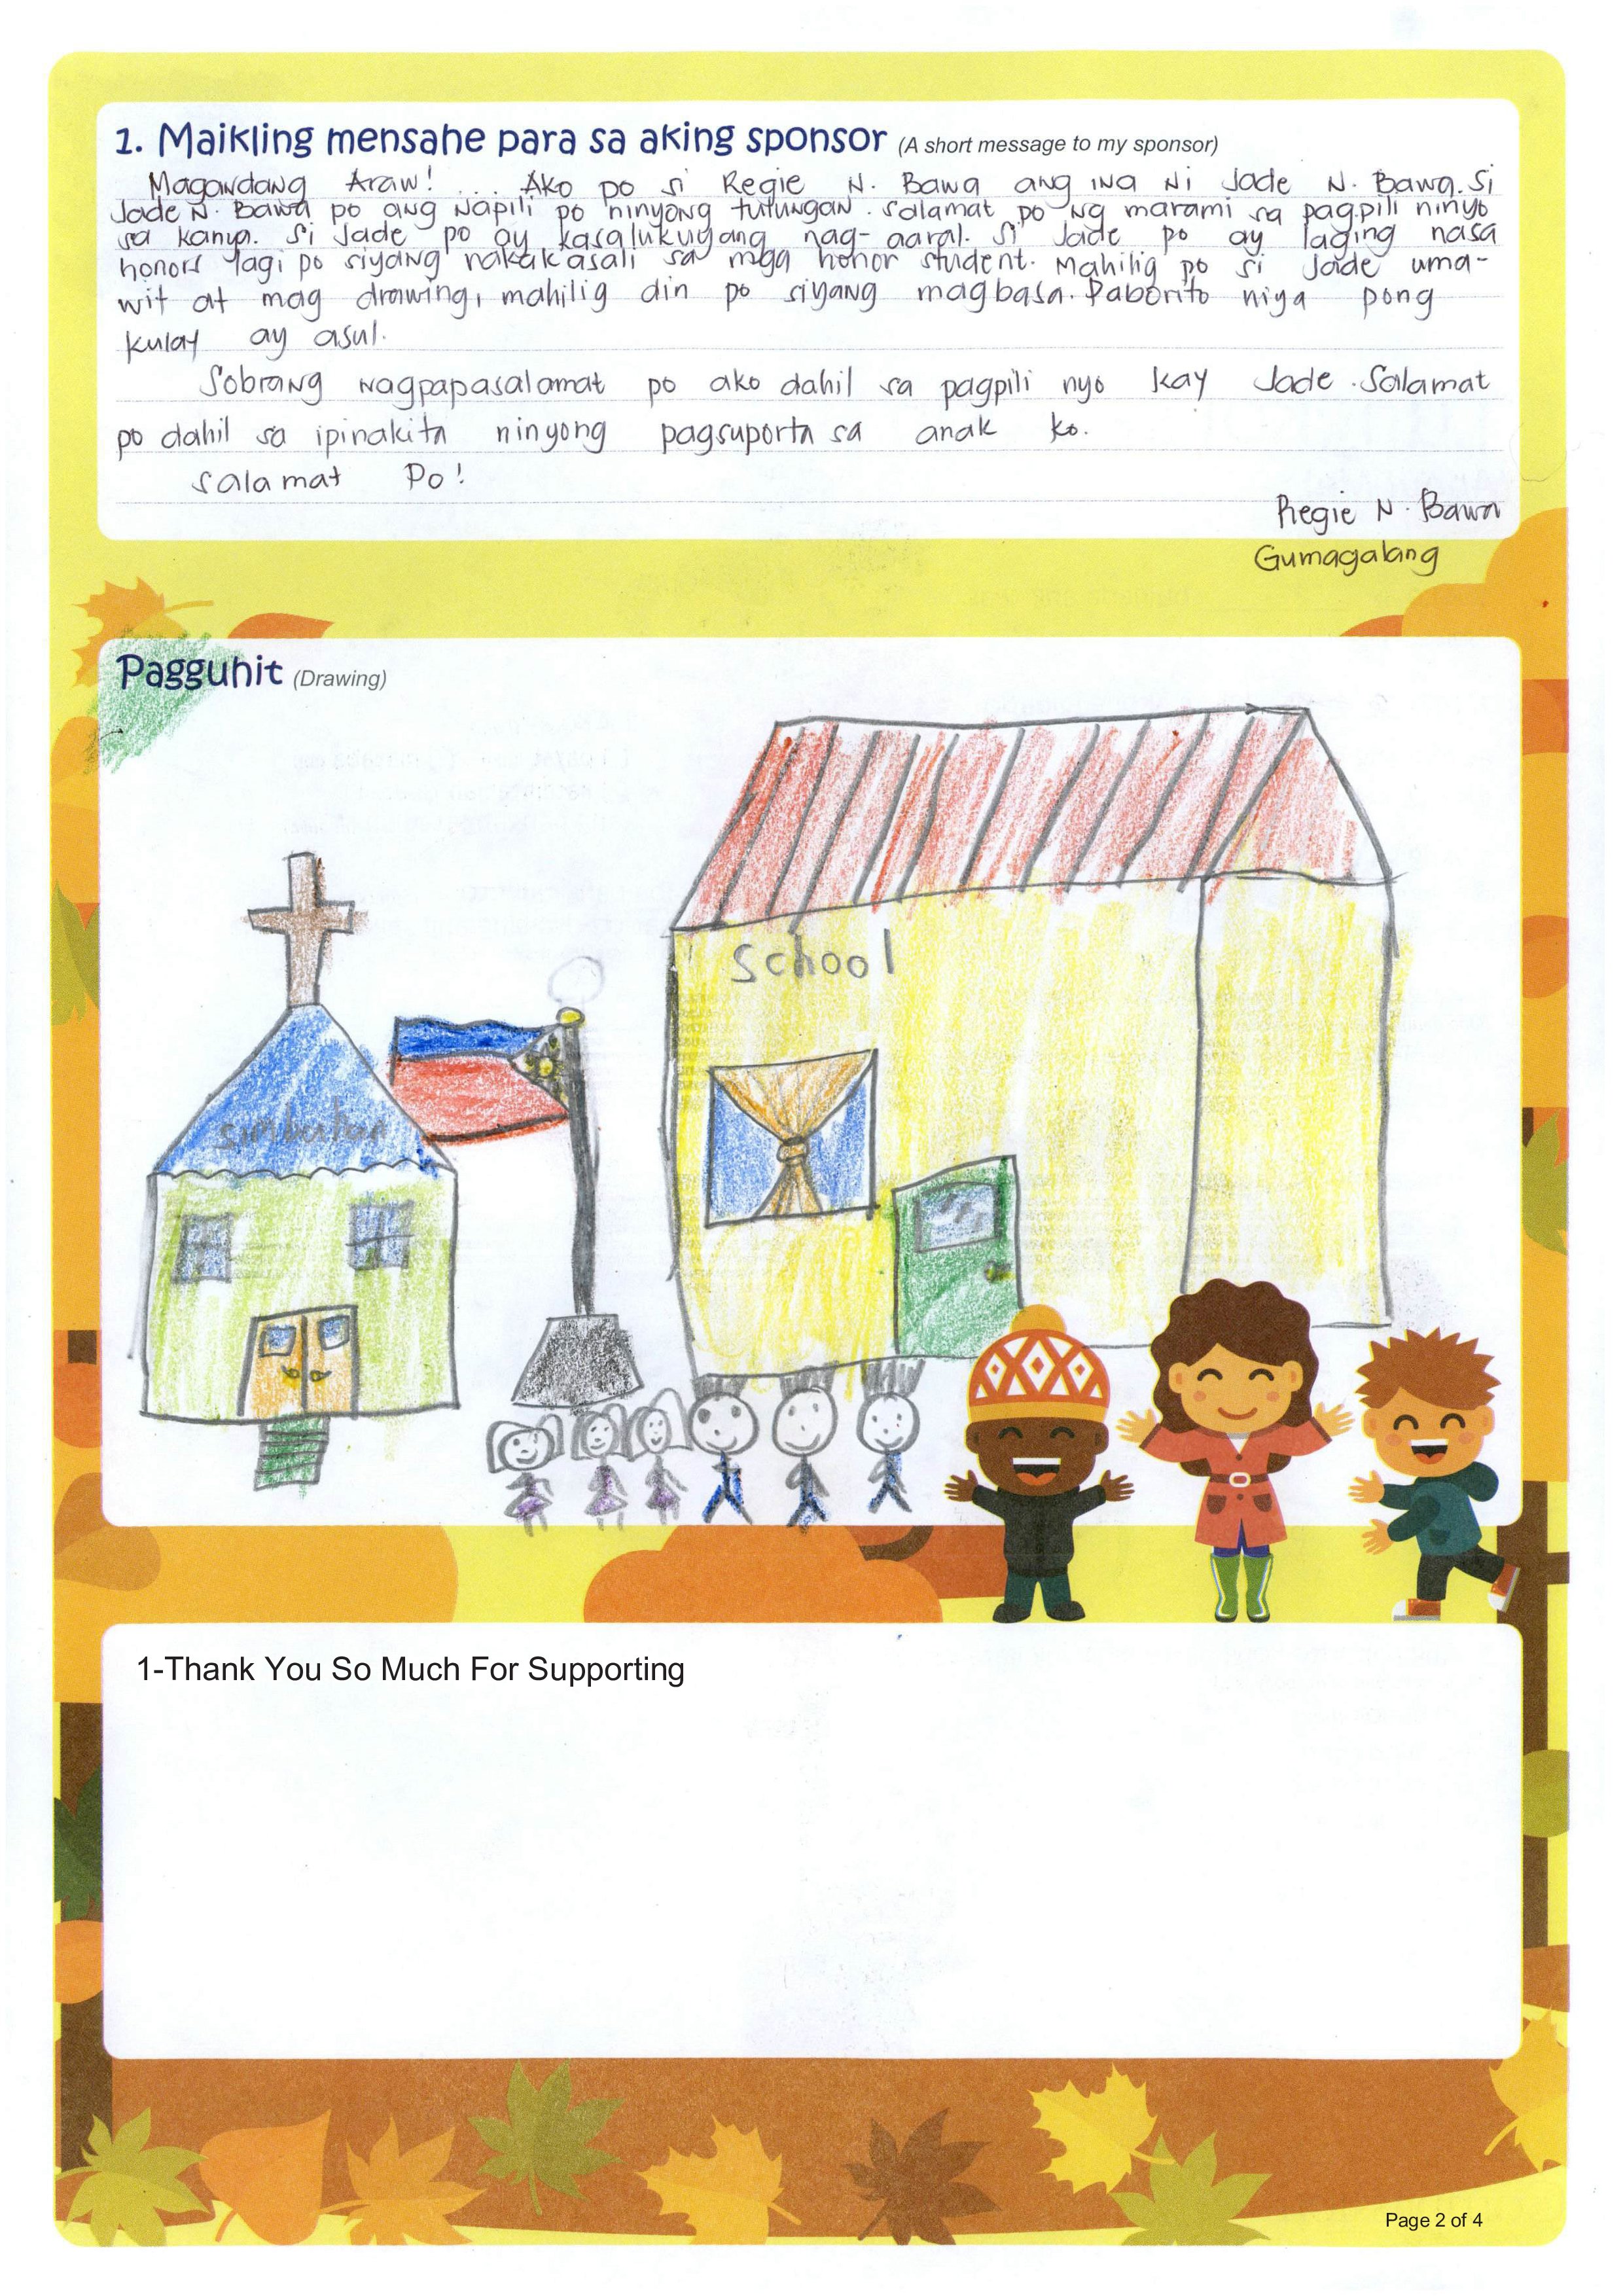 1. Maikling mensahe para sa aking sponsor (A short message to my sponsor)
Magandang Araw! ... Ako po si Regie N. Bawa ang ina ni Jade N. Bawa. Si
Jade N. Bawa po ang napili po ninyong tutungan. Salamat po ng marami sa pagpili ninyo
sa kanya. Si Jade po ay kasalukuyang nag-aaral. Si Jade po ay laging nasa
honors lagi po siyang nakakasali sa mga honor student. Mahilig po si Jade uma-
wit at mag drawing, mahilig din po siyang magbasa. Paborito niya pong
kulay ay asul.
Sobrang nagpapasalamat po ako dahil sa pagpili nyo kay Jade. Salamat
po dahil sa ipinakita ninyong pagsuporta sa anak ko.
Salamat Po!
Regie N. Bawa
Gumagalang
Pagguhit (Drawing)
School
simbahan
1-Thank You So Much For Supporting
Page 2 of 4